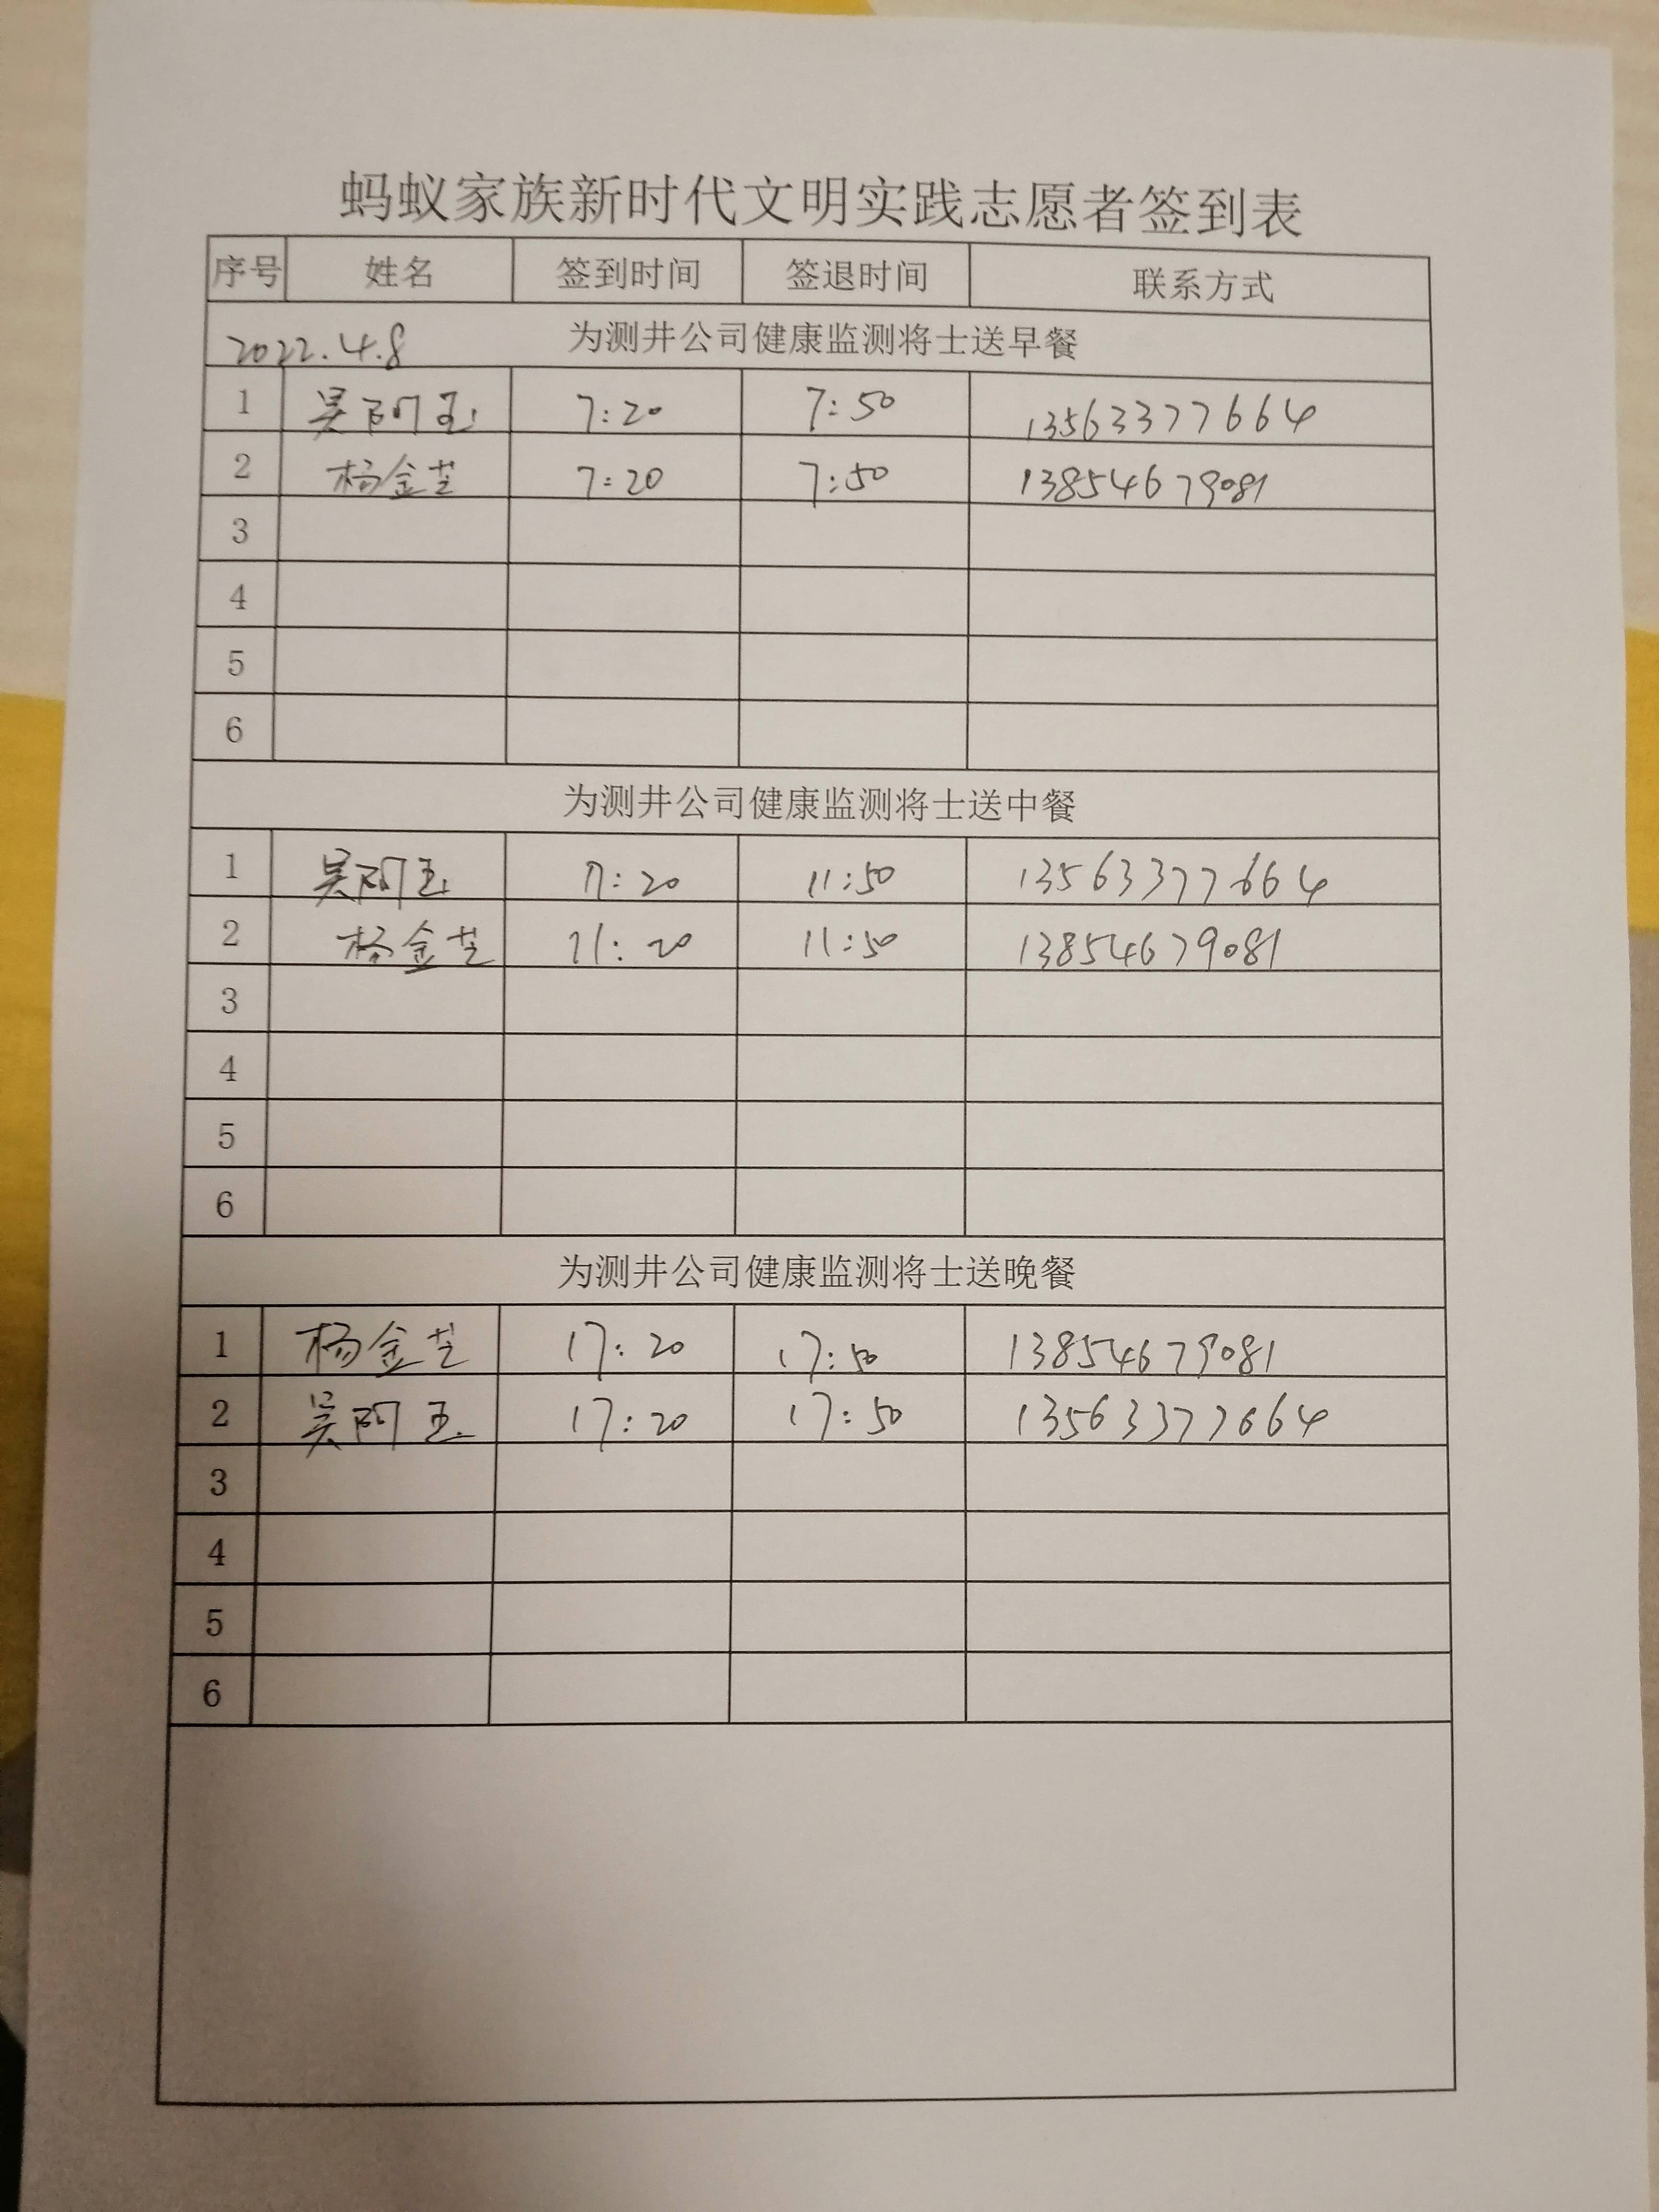 蚂蚁家族新时代文明实践志愿者签到表
序号 姓名 签到时间 签退时间 联系方式
2022.4.8 为测井公司健康监测将士送早餐
1 吴阿玉 7:20 7:50 13563377664
2 杨金芝 7:20 7:50 13854679081
3
4
5
6
为测井公司健康监测将士送中餐
1 吴阿玉 11:20 11:50 13563377664
2 杨金芝 11:20 11:50 13854679081
3
4
5
6
为测井公司健康监测将士送晚餐
1 杨金芝 17:20 17:50 13854679081
2 吴阿玉 17:20 17:50 13563377664
3
4
5
6